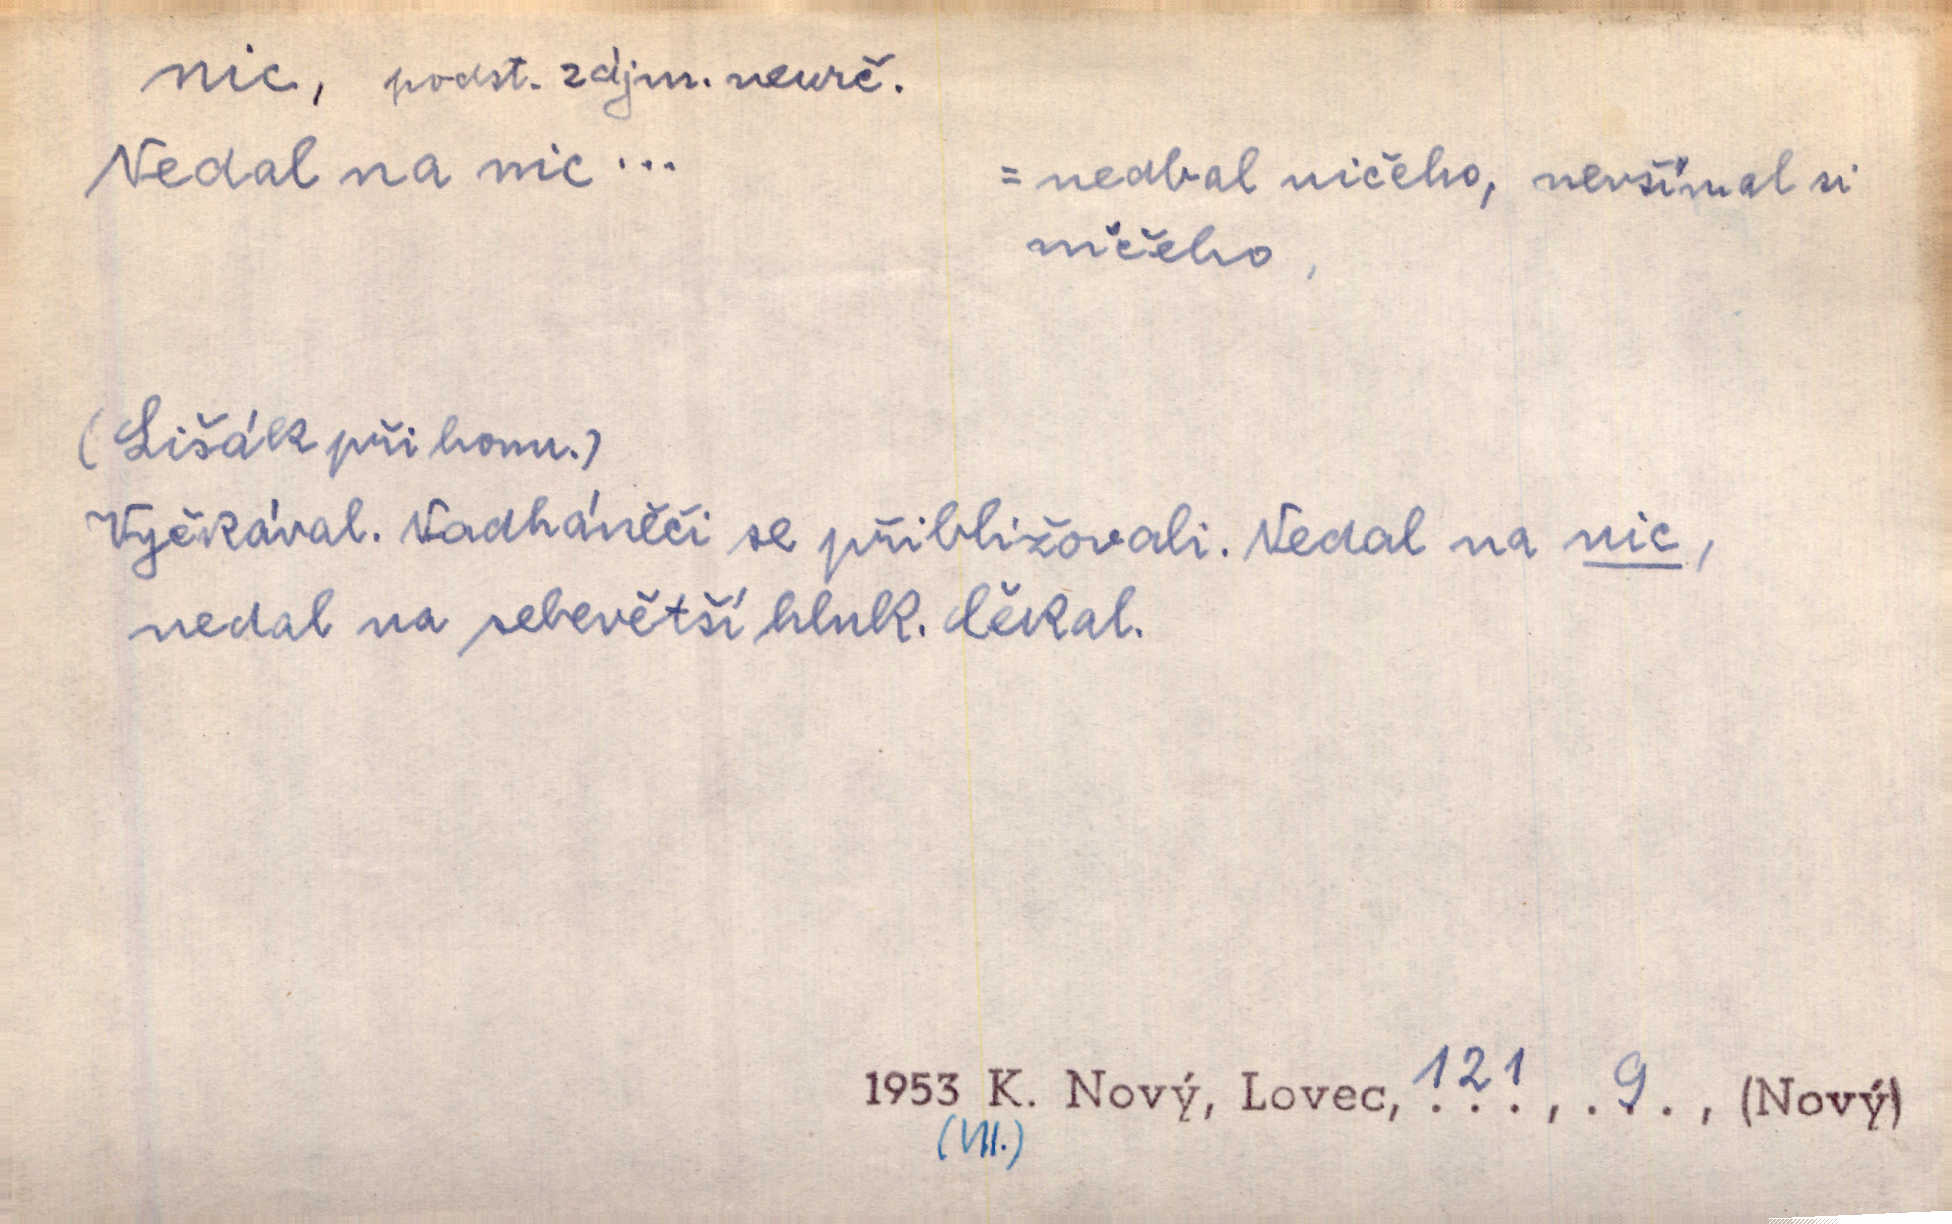 nic, podst. zájm. neurč.
Nedal na nic...
= nedbal ničeho, nevšímal si
ničeho,
(Lišák při honu.)
Vyčkával. Nadháněči se přibližovali. Nedal na nic,
nedal na sebevětší hluk. Čekal.
1953 K. Nový, Lovec, 121, 9, (Nový)
(VII.)